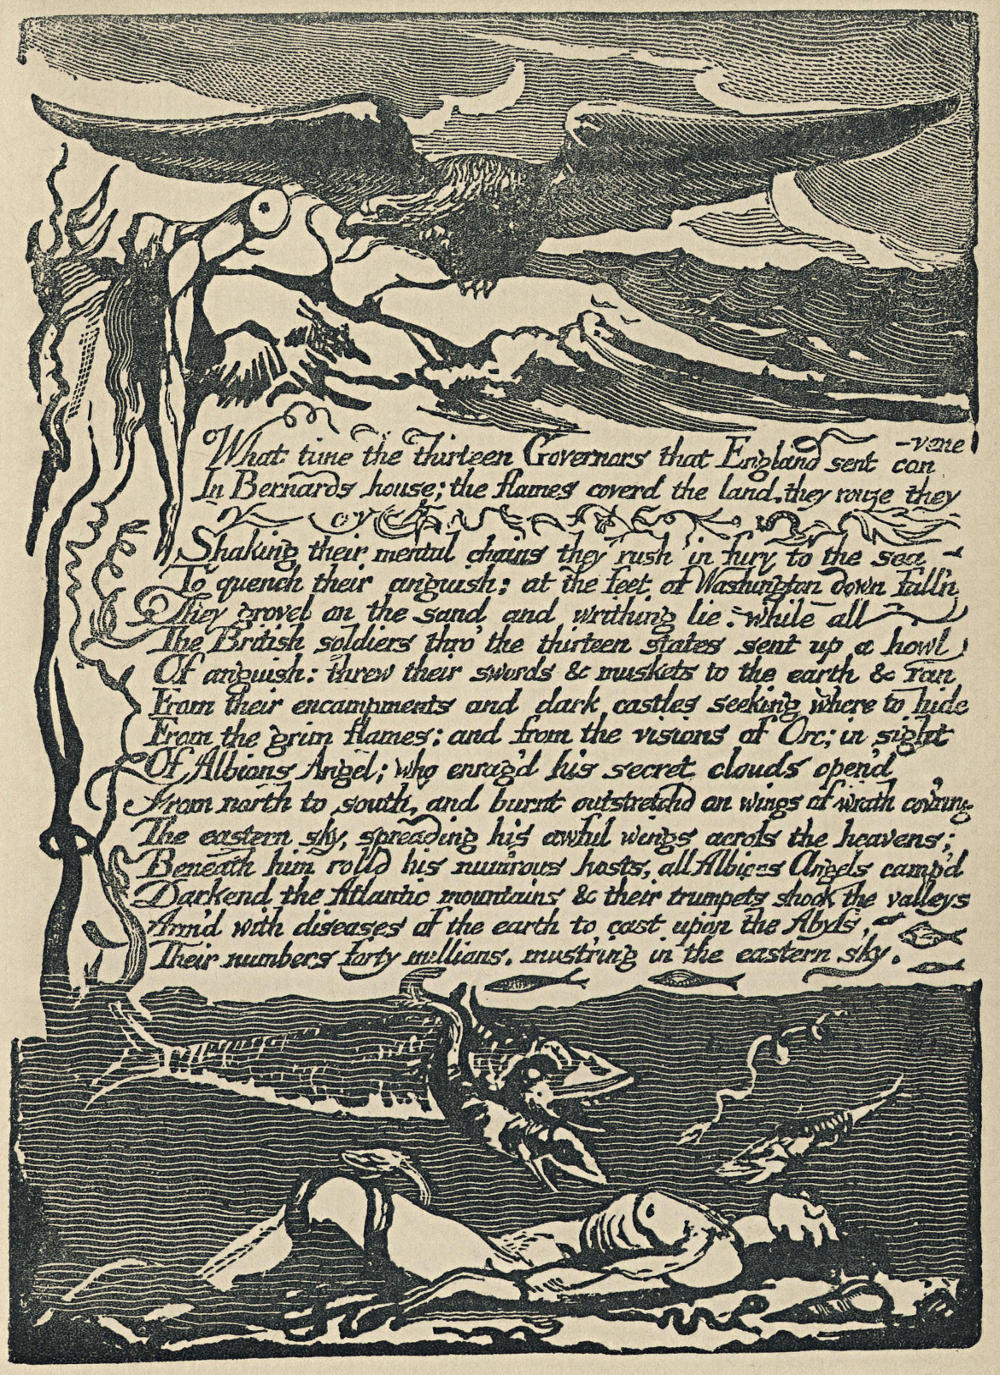 What time the Thirteen Governors that England sent con
-vene
In Bernards house; the flames coverd the land, they rouze they
cry
Shaking their mental chains they rush in fury to the sea
To quench their anguish; at the feet of Washington down fall'n
They grovel on the sand and writhing lie. while all
The British soldiers thro' the thirteen states sent up a howl
Of anguish: threw their swords & muskets to the earth & ran
From their encampments and dark castles seeking where to hide
From the grim flames; and from the visions of Orc; in sight
Of Albions Angel; who enrag'd his secret clouds open'd
From north to south, and burnt outstretchd on wings of wrath cov'ring
The eastern sky, spreading his awful wings across the heavens;
Beneath him rolld his num'rous hosts, all Albions Angels camp'd
Darkend the Atlantic mountains & their trumpets shook the valleys
Arm'd with diseases of the earth to cast upon the Abyss,
Their numbers forty millions, must'ring in the eastern sky.